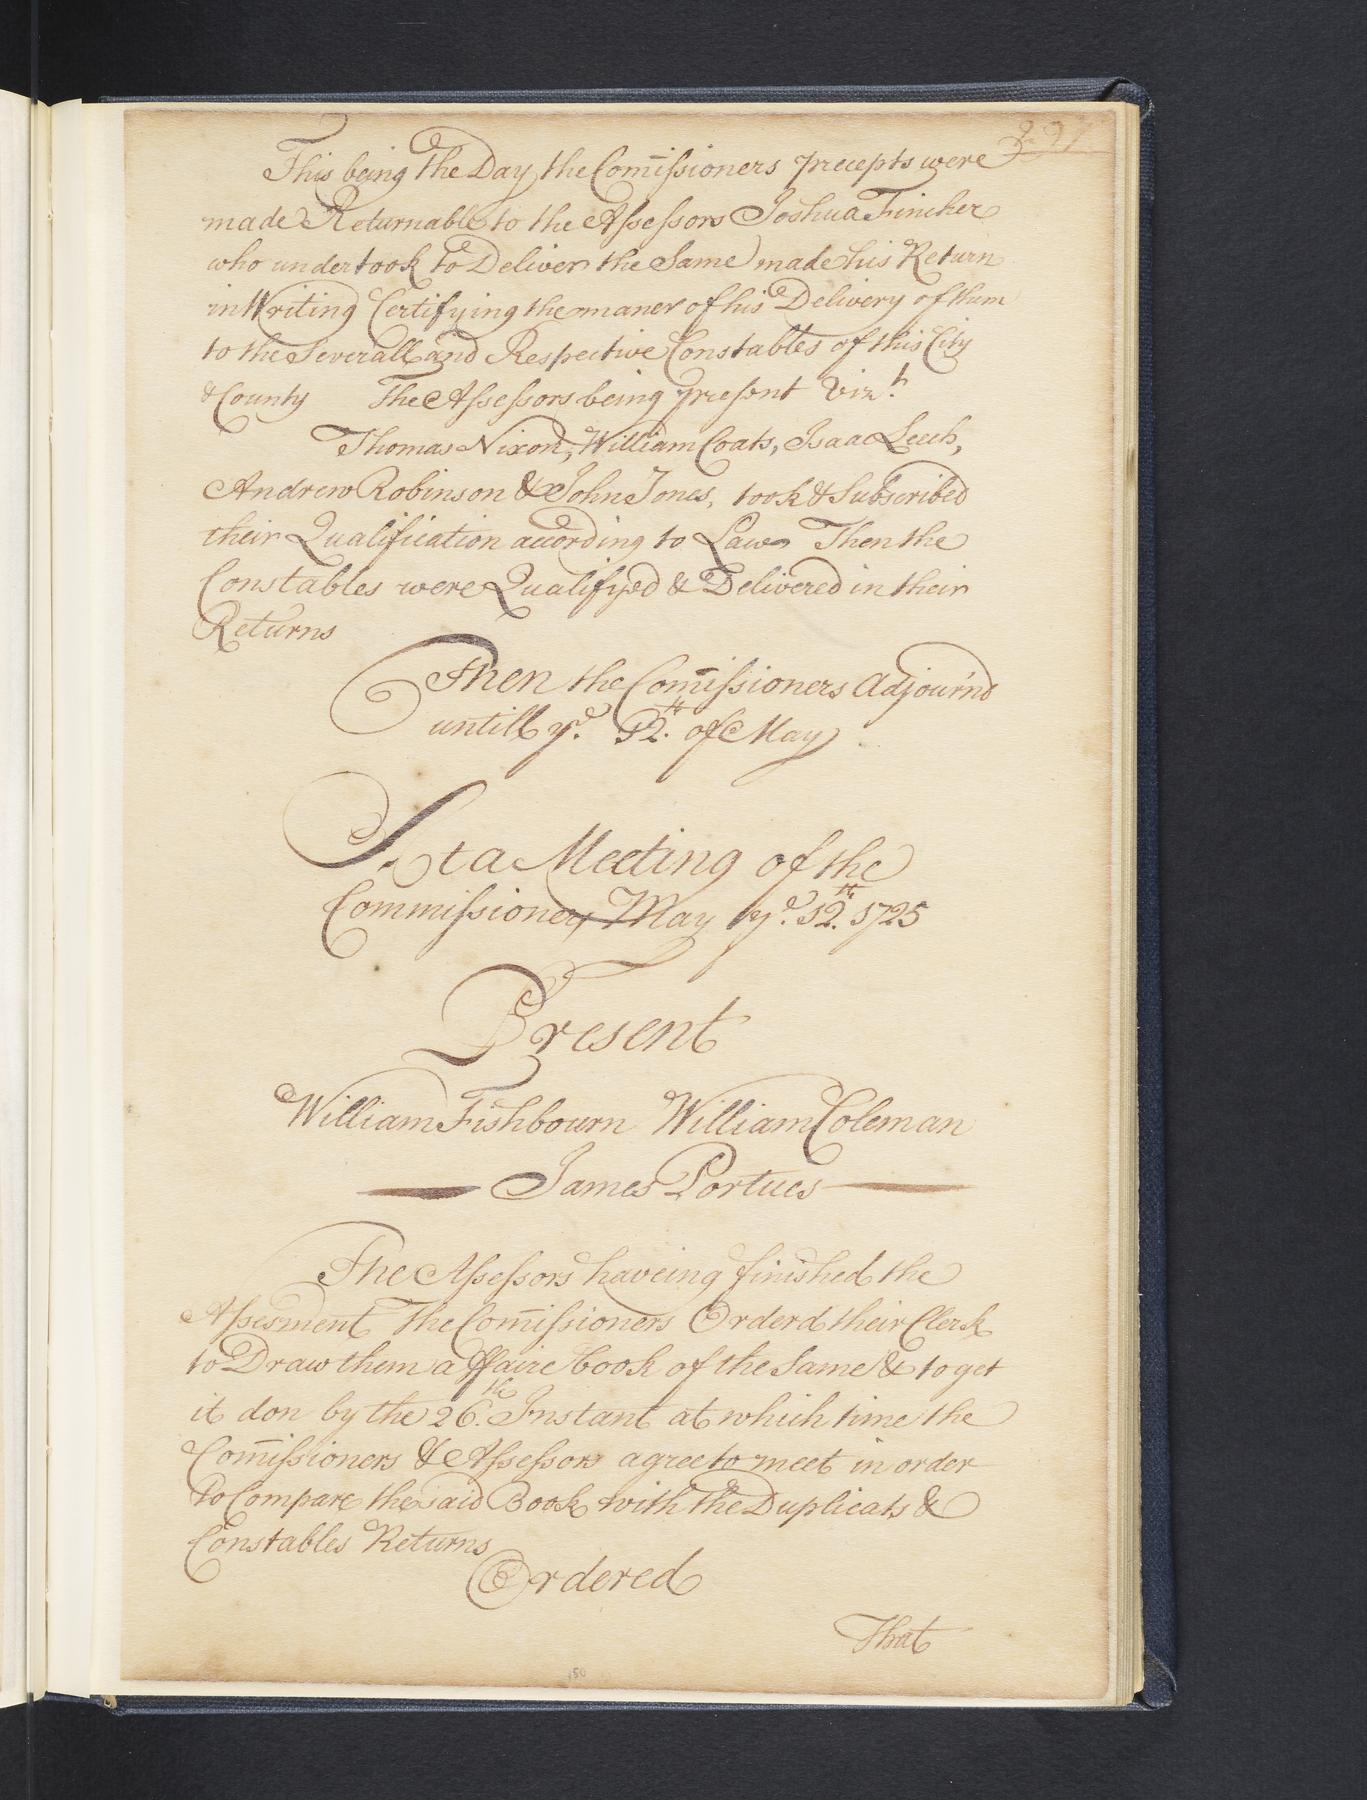 297
This being the Day the Com̄issioners precepts were
made Returnable to the Assessors Joshua Fincher
who undertook to Deliver the Same made his Return
in Writing Certifying the maner of his Delivery of them
to the Severall and Respective Constables of this City
& County The Assessors being present Vizt.
Thomas Nixon, William Coats, Isaac Leech,
Andrew Robinson & John Jones, took & Subscribed
their Qualification according to Law Then the
Constables were Qualifyed & Delivered in their
Returns
Then the Com̄issioners Adjour'nd
untill ye. 12th. of May
At a Meeting of the
Commissioners May ye. 12th. 1725
Present
William Fishbourn William Coleman
James Portues
The Assessors haveing finished the
Assesment The Com̄issioners Orderd their Clerk
to Draw them a ffaire book of the Same & to get
it don by the 26th. Instant at which time the
Com̄issioners & Assessors agree to meet in order
to Compare the said Book with the Duplicats &
Constables Returns
Ordered
That
150